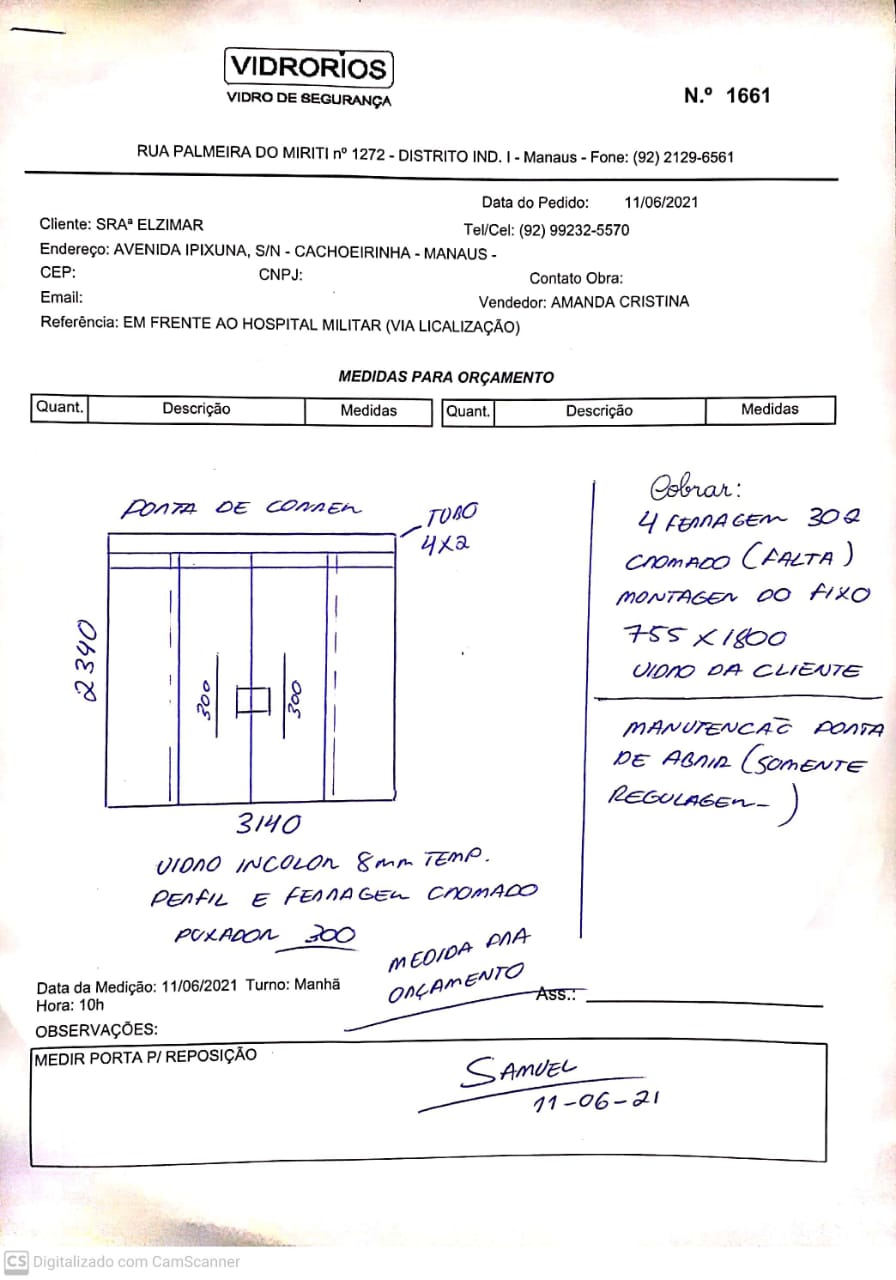 VIDRORIOS
VIDRO DE SEGURANÇA
N.º 1661
RUA PALMEIRA DO MIRITI nº 1272 - DISTRITO IND. I - Manaus - Fone: (92) 2129-6561
Data do Pedido: 11/06/2021
Cliente: SRAª ELZIMAR
Tel/Cel: (92) 99232-5570
Endereço: AVENIDA IPIXUNA, S/N - CACHOEIRINHA - MANAUS -
CEP: CNPJ: Contato Obra:
Email: Vendedor: AMANDA CRISTINA
Referência: EM FRENTE AO HOSPITAL MILITAR (VIA LICALIZAÇÃO)
MEDIDAS PARA ORÇAMENTO
Quant. Descrição Medidas Quant. Descrição Medidas
PORTA DE CORRER
TUBO
4X2
2340
300
300
3140
VIDRO INCOLOR 8mm TEMP.
PERFIL E FERRAGEM CROMADO
PUXADOR 300
Cobrar:
4 FERRAGEM 302
CROMADO (FALTA)
MONTAGEN DO FIXO
755 X 1800
VIDRO DA CLIENTE
MANUTENCAÕ PORTA
DE ABRIR (SOMENTE
REGULAGEM)
MEDIDA PRA
ORÇAMENTO
Data da Medição: 11/06/2021 Turno: Manhã
Hora: 10h
Ass.:
OBSERVAÇÕES:
MEDIR PORTA P/ REPOSIÇÃO
SAMUEL
11-06-21
CS Digitalizado com CamScanner